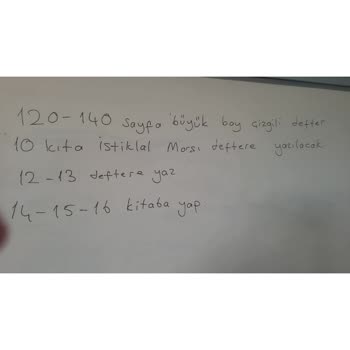 120-140 sayfa büyük boy çizgili defter
10 kıta İstiklal Marşı deftere yazılacak
12-13 deftere yaz
14-15-16 kitaba yap